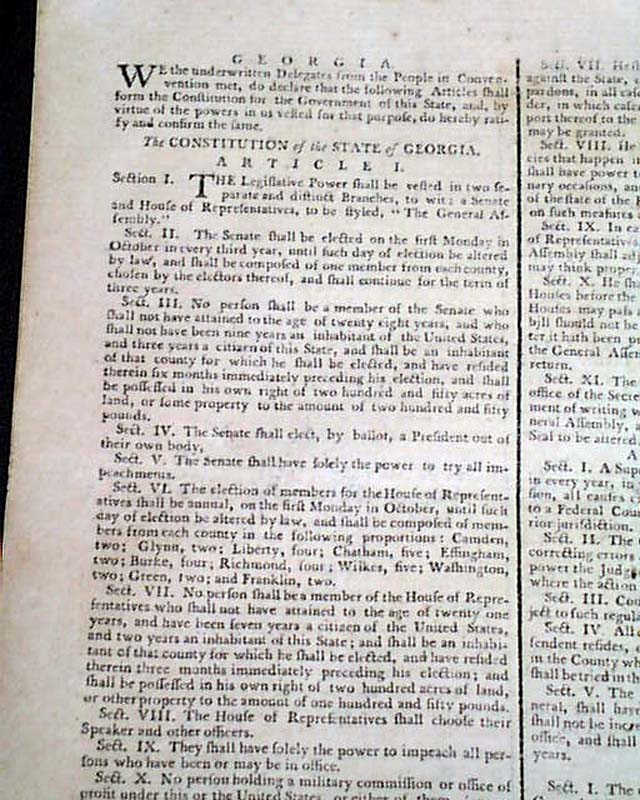 GEORGIA.
WE the underwritten Delegates from the People in Conven-
vention met, do declare that the following Articles ſhall
form the Conſtitution for the Government of this State, and, by
virtue of the powers in us veſted for that purpoſe, do hereby rati-
fy and confirm the ſame.
The CONSTITUTION of the STATE of GEORGIA.
ARTICLE I.
Section I. THE Legiſlative Power ſhall be veſted in two ſe-
parate and diſtinct Branches, to wit: a Senate
and Houſe of Repreſentatives, to be ſtyled, "The General Aſ-
ſembly."
Sect. II. The Senate ſhall be elected on the firſt Monday in
October in every third year, until ſuch day of election be altered
by law, and ſhall be compoſed of one member from each county,
choſen by the electors thereof, and ſhall continue for the term of
three years.
Sect. III. No perſon ſhall be a member of the Senate who
ſhall not have attained to the age of twenty eight years, and who
ſhall not have been nine years an inhabitant of the United States,
and three years a citizen of this State, and ſhall be an inhabitant
of that county for which he ſhall be elected, and have reſided
therein ſix months immediately preceding his election, and ſhall
be poſſeſſed in his own right of two hundred and fifty acres of
land, or ſome property to the amount of two hundred and fifty
pounds.
Sect. IV. The Senate ſhall elect, by ballot, a Preſident out of
their own body,
Sect. V. The Senate ſhall have ſolely the power to try all im-
peachments.
Sect. VI. The election of members for the Houſe of Repreſent-
atives ſhall be annual, on the firſt Monday in October, until ſuch
day of election be altered by law, and ſhall be compoſed of mem-
bers from each county in the following proportions: Camden,
two; Glynn, two; Liberty, four; Chatham, five; Effingham,
two; Burke, four; Richmond, four; Wilkes, five; Waſhington,
two; Green, two; and Franklin, two.
Sect. VII. No perſon ſhall be a member of the Houſe of Repre-
ſentatives who ſhall not have attained to the age of twenty one
years, and have been ſeven years a citizen of the United States,
and two years an inhabitant of this State; and ſhall be an inhabi-
tant of that county for which he ſhall be elected, and have reſided
therein three months immediately preceding his election; and
ſhall be poſſeſſed in his own right of two hundred acres of land,
or other property to the amount of one hundred and fifty pounds.
Sect. VIII. The Houſe of Repreſentatives ſhall chooſe their
Speaker and other officers.
Sect. IX. They ſhall have ſolely the power to impeach all per-
ſons who have been or may be in office.
Sect. X. No perſon holding a military commiſſion or office of
profit under this or the United States, or either of them
Sect. VII. He
againſt the State,
pardons, in all caſ
der, in which caſe
port thereof to the
may be granted.
Sect. VIII. He
cies that happen i
ſhall have power t
nary occaſions, and
of the ſtate of the
on ſuch meaſures
Sect. IX. In ca
of Repreſentative
Aſſembly ſhall adj
may think proper
Sect. X. He ſha
Houſes before the
Houſes may paſs a
bill ſhould not be
ter it hath been p
the General Aſſe
return.
Sect. XI. The
office of the Secre
ment of writing
neral Aſſembly, a
Seal to be altered
A
Sect. I. A Su
in every year, in
ſion, all cauſes
to a Federal Cou
rior juriſdiction.
Sect. II. The
correcting errors
power the Judg
where the action
Sect. III. Cou
ject to ſuch regula
Sect. IV. All
fendent reſides,
in the County wh
ſhall be tried in th
Sect. V. The
neral, ſhall have
ſhall not be incre
office, and ſhall
years.
Sect. I. The